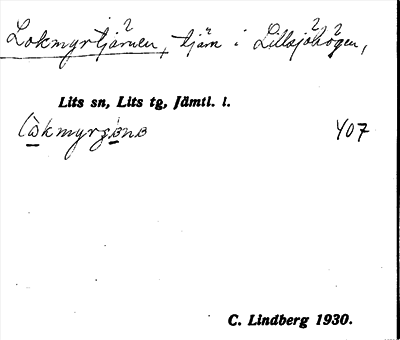 Lokmyrtjärnen, tjärn i Lillsjöhögen,
Lits sn, Lits tg, Jämtl. l.
407
C. Lindberg 1930.